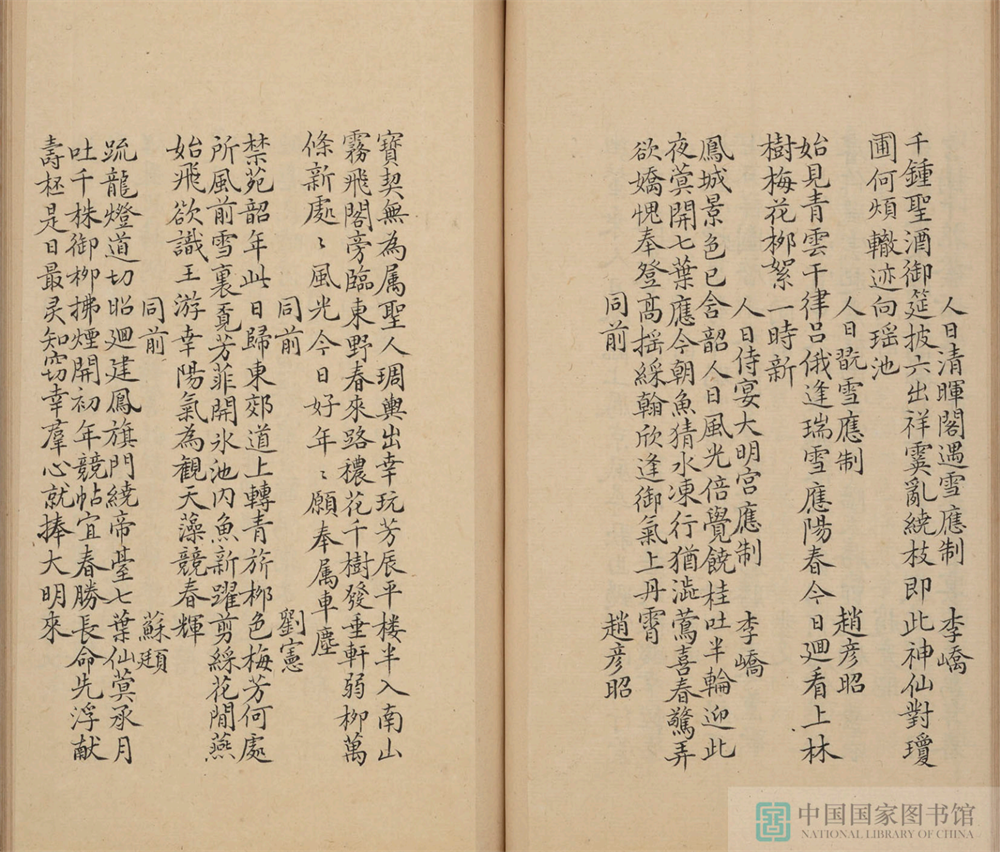 人日清暉閣遇雪應制 李嶠
千鍾聖酒御筵披六出祥霙亂繞枝即此神仙對瓊
圃何煩轍迹向瑶池
人日翫雪應制 趙彦昭
始見青雲干律吕俄逢瑞雪應陽春今日廻看上林
樹梅花柳絮一時新
人日侍宴大明宫應制 李嶠
鳳城景色已含韶人日風光倍覺饒桂吐半輪迎此
夜蓂開七葉應今朝魚猜水凍行猶澁鶯喜春驚弄
欲嬌愧奉登髙摇綵翰欣逢御氣上丹霄
同前 趙彦昭
寶契無為属聖人琱輿出幸玩芳辰平楼半入南山
霧飛閣旁臨東野春來路穠花千樹發垂軒弱柳萬
條新處〻風光今日好年〻願奉属車塵
同前 劉憲
禁苑韶年此日歸東郊道上轉青旂栁色梅芳何處
所風前雪裏覔芳菲開氷池内魚新躍剪綵花間燕
始飛欲識王游幸陽氣為觀天藻競春輝
同前 蘇頲
䟽龍燈道切昭廻建鳳旗門繞帝臺七葉仙蓂承月
吐千株御栁拂煙開初年競帖宜春勝長命先浮献
壽桮是日最灵知窃幸羣心就捧大明來
中国国家图书馆
NATIONAL LIBRARY OF CHINA